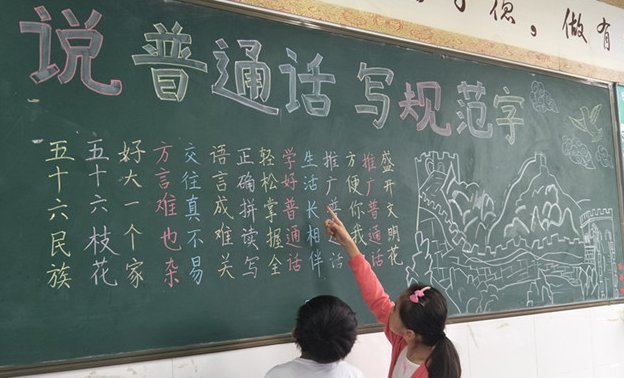 德，做有
说普通话 写规范字
五十六民族
五十六枝花
好大一个家
方言难也杂
交往真不易
语言成难关
正确拼读写
轻松掌握全
学好普通话
生活长相伴
推广普通话
方便你我
推广普通话
盛开文明花